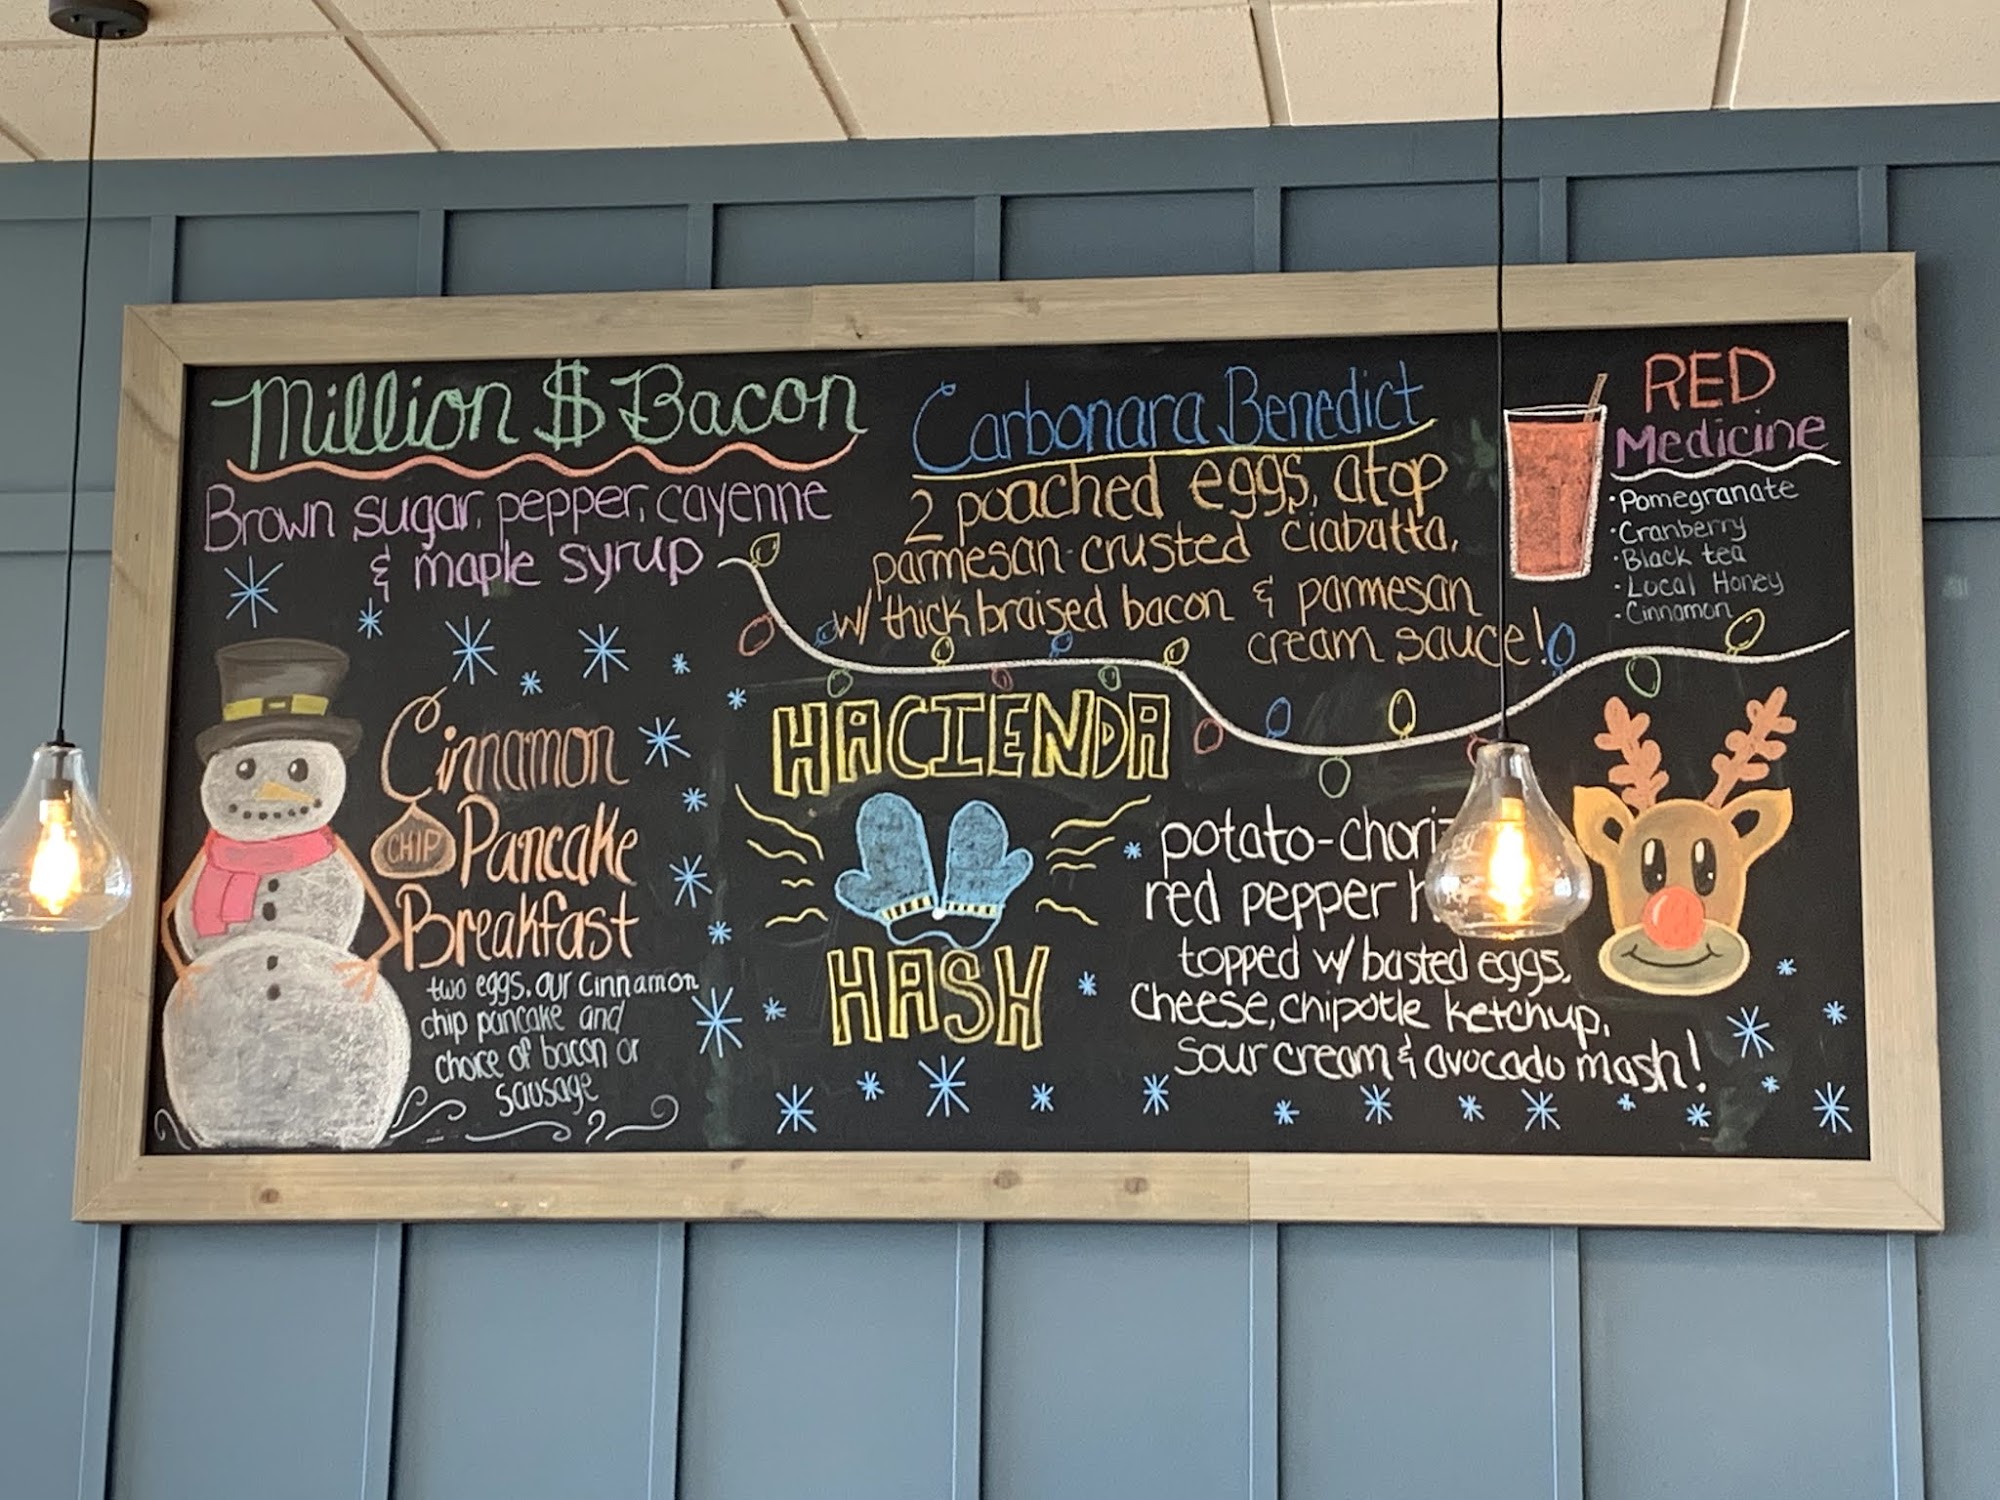 Million $ Bacon
Brown sugar, pepper, cayenne
& maple syrup
Carbonara Benedict
2 poached eggs, atop
parmesan-crusted ciabatta,
w/ thick braised bacon & parmesan
cream sauce!
RED
Medicine
·Pomegranate
·Cranberry
·Black tea
·Local Honey
·Cinnamon
Cinnamon
CHIP Pancake
Breakfast
two eggs, our cinnamon
chip pancake and
choice of bacon or
sausage
HACIENDA
HASH
potato-chori
red pepper
topped w/ basted eggs,
cheese, chipotle ketchup,
sour cream & avocado mash!